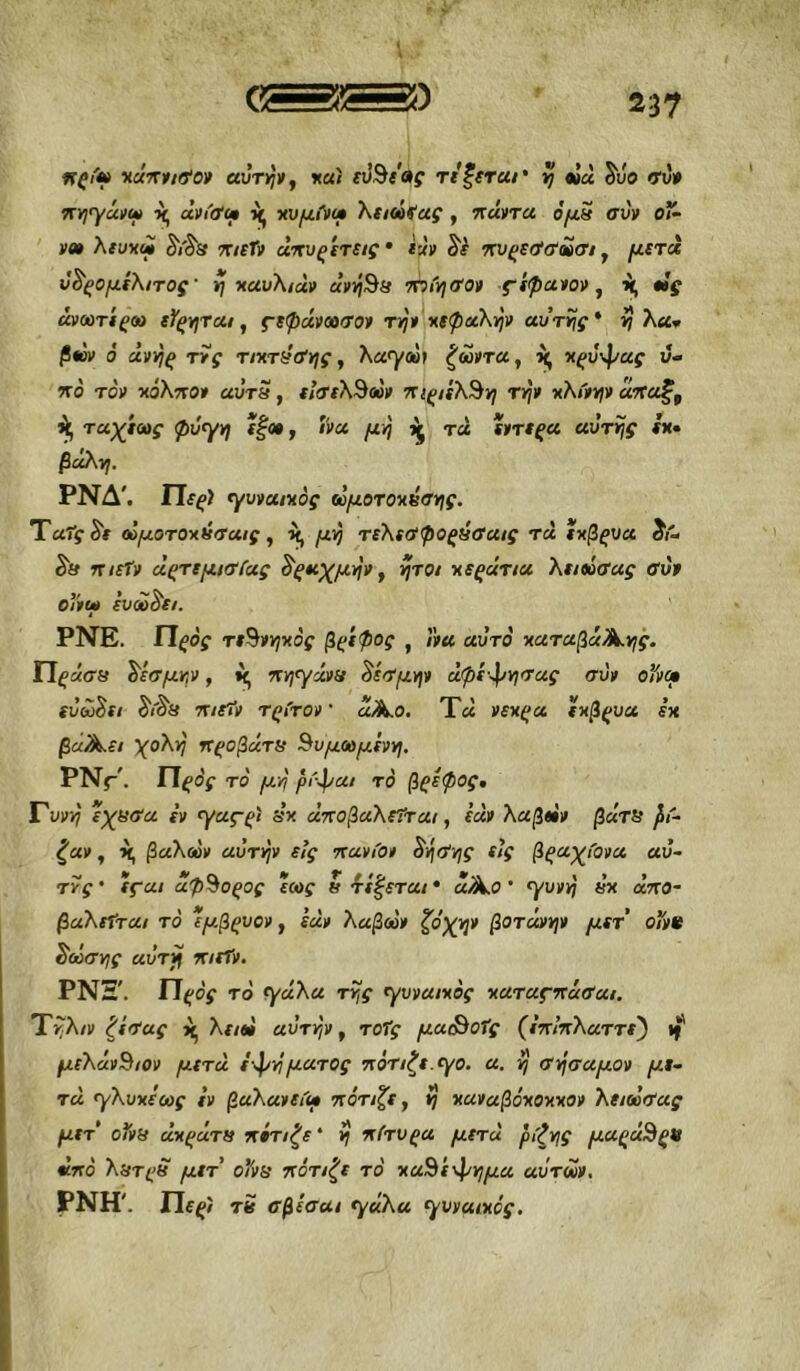 237
πρίῳ κάπνισον αὐτὴν, καὶ εὐθέως τέξεται· ἢ ὠὰ δύο σὺν
πηγάνῳ ϗ ἀνίσῳ ϗ κυμίνῳ λειώσας, πάντα ὁμοῦ σὺν οἴ-
νῳ λευκῷ δίδου πιεῖν ἀπυρέτεις· ἐὰν δὲ πυρεσσῶσι, μετὰ
ὑδρομέλιτος· ἢ καυλιὰν ἀνήθου ποίησον ϛέφανον, ϗ ὡς
ἀνωτέρω εἴρηται, ϛεφάνωσον τὴν κεφαλὴν αὐτῆς· ἢ λα-
βὼν ὁ ἀνὴρ τῆς τικτούσης, λαγωὸν ζῶντα, ϗ κρύψας ὑ-
πὸ τὸν κόλπον αὐτοῦ, εἰσελθὼν περιέλθῃ τὴν κλίνην ἅπαξ,
ϗ ταχέως φύγῃ ἔξω, ἵνα μὴ ϗ τὰ ἔντερα αὐτῆς ἐκ-
βάλῃ.
ΡΝΔ'. Περὶ γυναικὸς ὠμοτοκούσης.
Ταῖς δὲ ὠμοτοκούσαις, ϗ μὴ τελεσφορούσαις τὰ ἔκβρυα δί-
δου πιεῖν ἀρτεμισίας δραχμὴν, ἤτοι κεράτια λειώσας σὺν
οἴνῳ εὐώδει.
ΡΝΕ. Πρὸς τεθνηκὸς βρέφος, ἵνα αὐτὸ καταβάλλῃς.
Πράσου δέσμην, ϗ πηγάνου δέσμην ἀφέψησας σὺν οἴνῳ
εὐώδει δίδου πιεῖν τρίτον· ἄλλο. Τὰ νεκρα ἔκβρυα ἐκ
βάλλει χολὴ προβάτου θυμωμένη.
ΡΝϛ'. Πρὸς τὸ μὴ ῥίψαι τὸ βρέφος.
Γυνὴ ἔχουσα ἐν γαϛρὶ οὐκ ἀποβαλεῖται, ἐὰν λαβὼν βάτου ῥί-
ζαν, ϗ βαλὼν αὐτὴν εἰς πανίον δήσῃς εἰς βραχίονα αὐ-
τῆς· ἔϛαι ἄφθορος ἕως οὗ τέξεται· ἄλλο· γυνὴ οὐκ ἀπο-
βαλεῖται τὸ ἔμβρυον, ἐὰν λαβὼν ζόχην βοτάνην μετ' οἴνου
δώσῃς αὐτῇ πιεῖν.
ΡΝΞ'. Πρὸς τὸ γάλα τῆς γυναικὸς καταϛπάσαι.
Τῆλιν ζέσας ϗ λειῶ αὐτὴν, τοῖς μασθοῖς (ἐπίπλαττε) ἢ
μελάνθιον μετὰ ἑψήματος πότιζε.γο. α. ἢ σήσαμον με-
τὰ γλυκέως ἐν βαλανείῳ πότιζε, ἢ καναβόκοκκον λειώσας
μετ' οἴνου ἀκράτου πότιζε· ἢ πίτυρα μετὰ ῥίζης μαράθρου
ἀπὸ λουτροῦ μετ' οἴνου πότιζε τὸ καθέψημα αὐτῶν.
ΡΝΗ'. Περὶ τοῦ σβέσαι γάλα γυναικός.